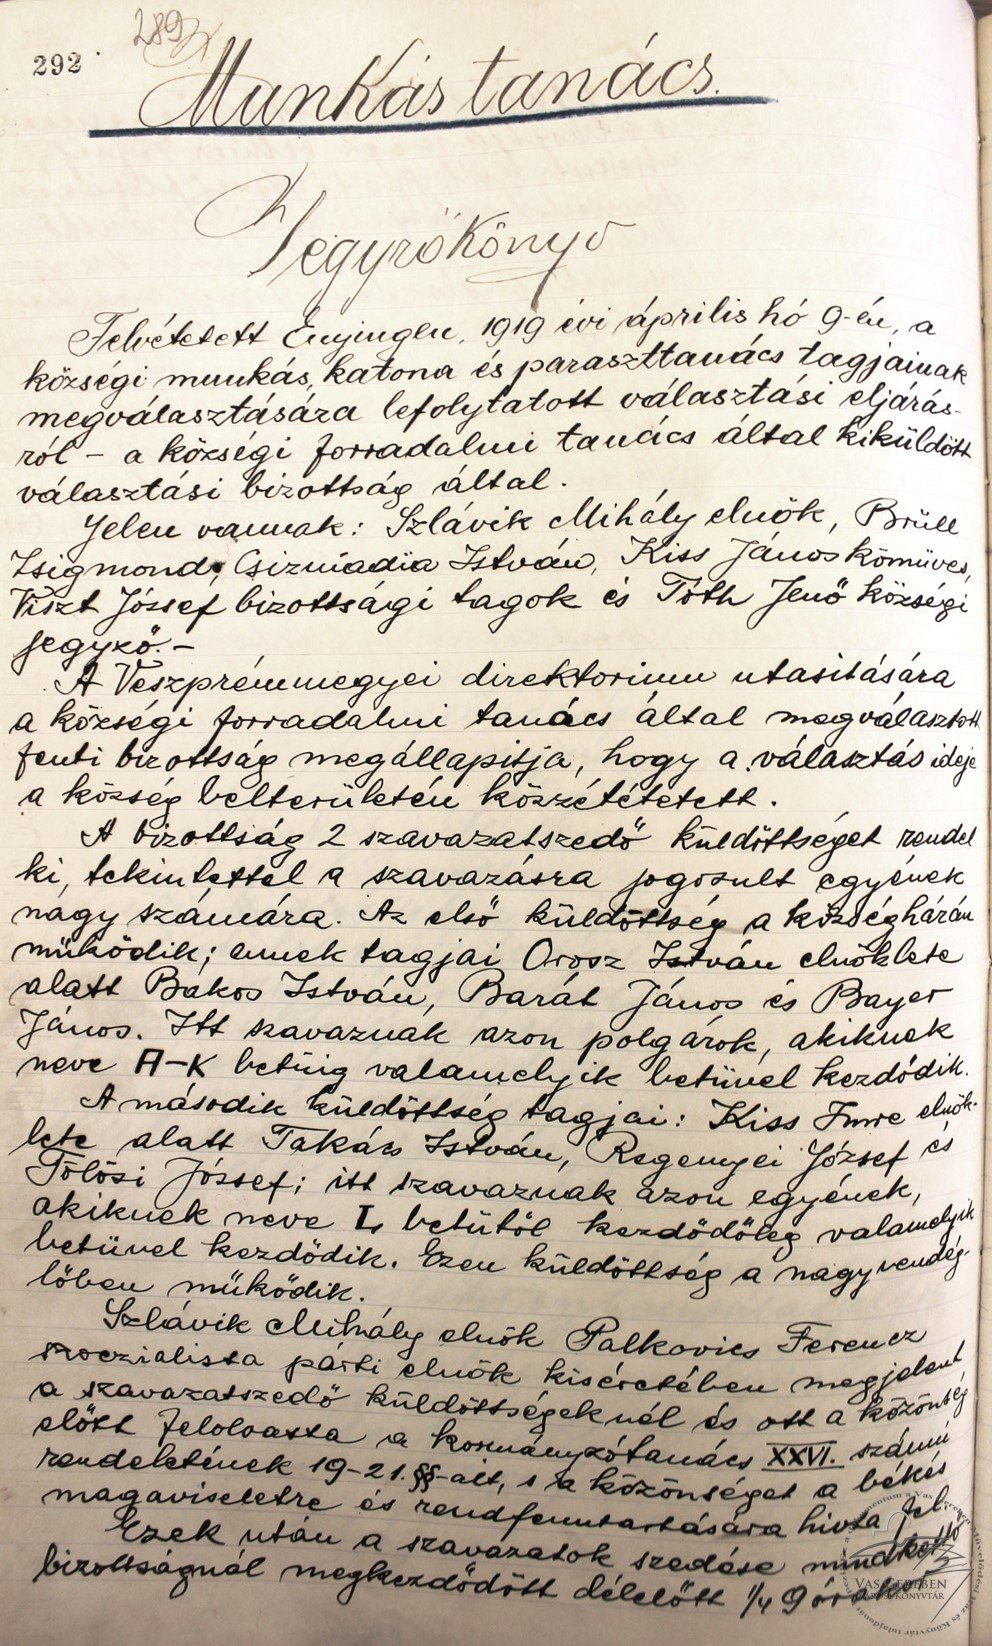 289
292
Munkás tanács.
Jegyzőkönyv
Felvétetett Enyingen, 1919 évi április hó 9-én, a
községi munkás, katona és paraszttanács tagjainak
megválasztására lefolytatott választási eljárás-
ról - a községi forradalmi tanács által kiküldött
választási bizottság által.
Jelen vannak: Szlávik Mihály elnök, Brüll
Zsigmond, Csizmadia István, Kiss János kőmüves,
Viszt József bizottsági tagok és Tóth Jenő községi
jegyző. -
A Veszprémmegyei direktorium utasitására
a községi forradalmi tanács által megválasztott
fenti bizottság megállapitja, hogy a választás ideje
a község belterületén közzétetetett.
A bizottság 2 szavazatszedő küldöttséget rendel
ki, tekintettel a szavazásra jogosult egyének
nagy számára. Az első küldöttség a községházán
működik; ennek tagjai Orosz István elnöklete
alatt Bakos István, Barát János és Bayer
János. Itt szavaznak azon polgárok, akiknek
neve A-K betüig valamelyik betüvel kezdődik.
A második küldöttség tagjai: Kiss Imre elnök-
lete alatt Takács István, Regenyei József és
Tölösi József; itt szavaznak azon egyének,
akiknek neve L betütől kezdődőleg valamelyik
betüvel kezdődik. Ezen küldöttség a nagyvendég-
lőben működik.
Szlávik Mihály elnök Palkovics Ferencz
szoczialista párti elnök kiséretében megjelent
a szavazatszedő küldöttségeknél és ott a közönség
előtt felolvasta a kormányzótanács XXVI. számú
rendeletének 19-21. §§-ait, s a közönséget a békés
magaviseletre és rendfenntartására hivta fel.
Ezek után a szavazatok szedése mindkettő
bizottságnál megkezdődött délelőtt 1/4 9 órakor
VAS GEREBEN
KÖNYVTÁR